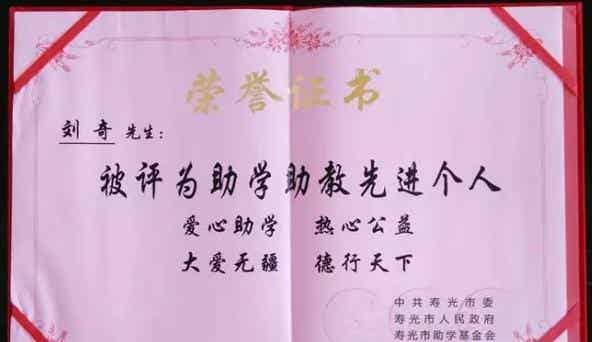 荣誉证书
刘奇 先生：
被评为助学助教先进个人
爱心助学 热心公益
大爱无疆 德行天下
中共寿光市委
寿光市人民政府
寿光市助学基金会